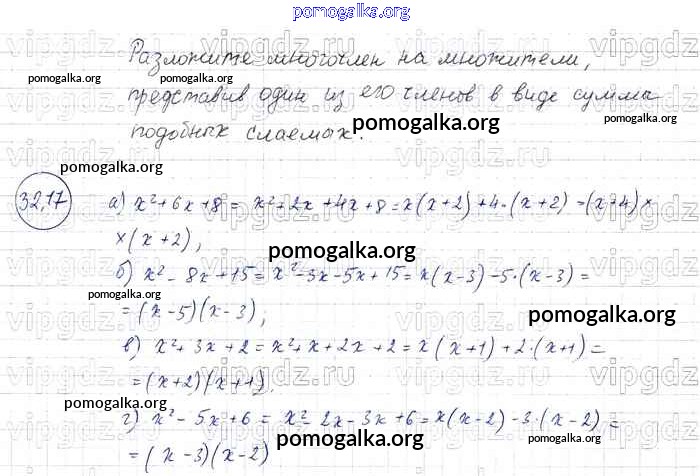 pomogalka.org
Разложите многочлен на множители,
pomogalka.org pomogalka.org
представив один из его членов в виде суммы
pomogalka.org
подобных слаемых.
pomogalka.org
32,17 а) x²+6x+8 = x²+2x+4x+8=x(x+2)+4·(x+2)=(x+4)×
pomogalka.org
×(x+2);
pomogalka.org
б) x²-8x+15=x²-3x-5x+15=x(x-3)-5·(x-3)=
pomogalka.org
=(x-5)(x-3);
pomogalka.org
в) x²+3x+2=x²+x+2x+2=x(x+1)+2·(x+1)=
=(x+2)(x+1).
pomogalka.org
pomogalka.org
г) x²-5x+6=x²-2x-3x+6=x(x-2)-3·(x-2)=
pomogalka.org pomogalka.org
=(x-3)(x-2)
vipgdz.ru vipgdz.ru vipgdz.ru